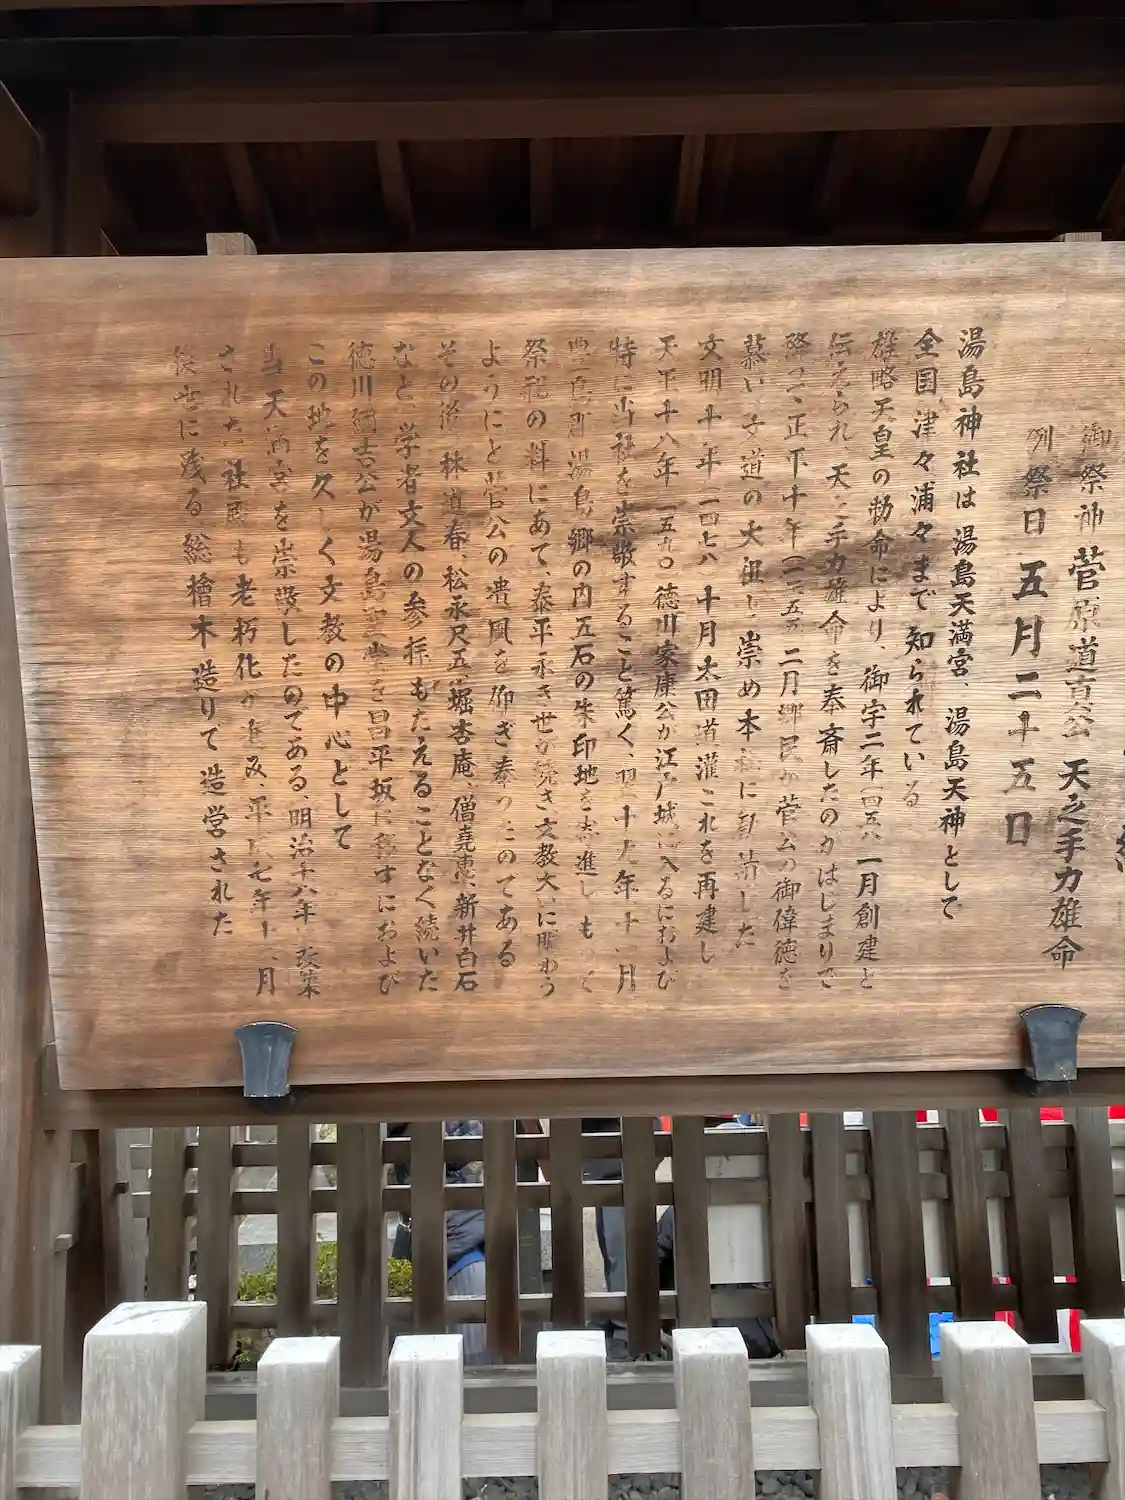 御祭神 菅原道真公 天之手力雄命
例祭日 五月二十五日
湯島神社は 湯島天満宮、湯島天神として
全国津々浦々まで知られている
雄略天皇の勅命により、御宇二年(四五八 一月創建と
伝えられ、天之手力雄命を奉斎したのがはじまりで
降って、正平十年(一三五五 二月郷民が菅公の御偉徳を
慕い、文道の大祖と崇め本社に勧請した
文明十年(一四七八 十月太田道灌これを再建し
天正十八年(一五九〇 徳川家康公が江戸城に入るにおよび
特に当社を崇敬すること篤く、翌十九年十一月
豊島郡湯島郷の内五石の朱印地を寄進しもって
祭祀の料にあて、泰平永き世が続き文教大いに賑わう
ようにと菅公の遺風を仰ぎ奉ったのである
その後 林道春、松永尺五、堀杏庵、僧堯恵、新井白石
など、学者文人の参拝もたえることなく続いた
徳川綱吉公が湯島聖堂を昌平坂に移すにおよび
この地を久しく文教の中心として
当天満宮を崇敬したのである 明治十八年 改築
された社殿も老朽化が進み、平成七年十二月
後世に残る、総檜木造りで造営された